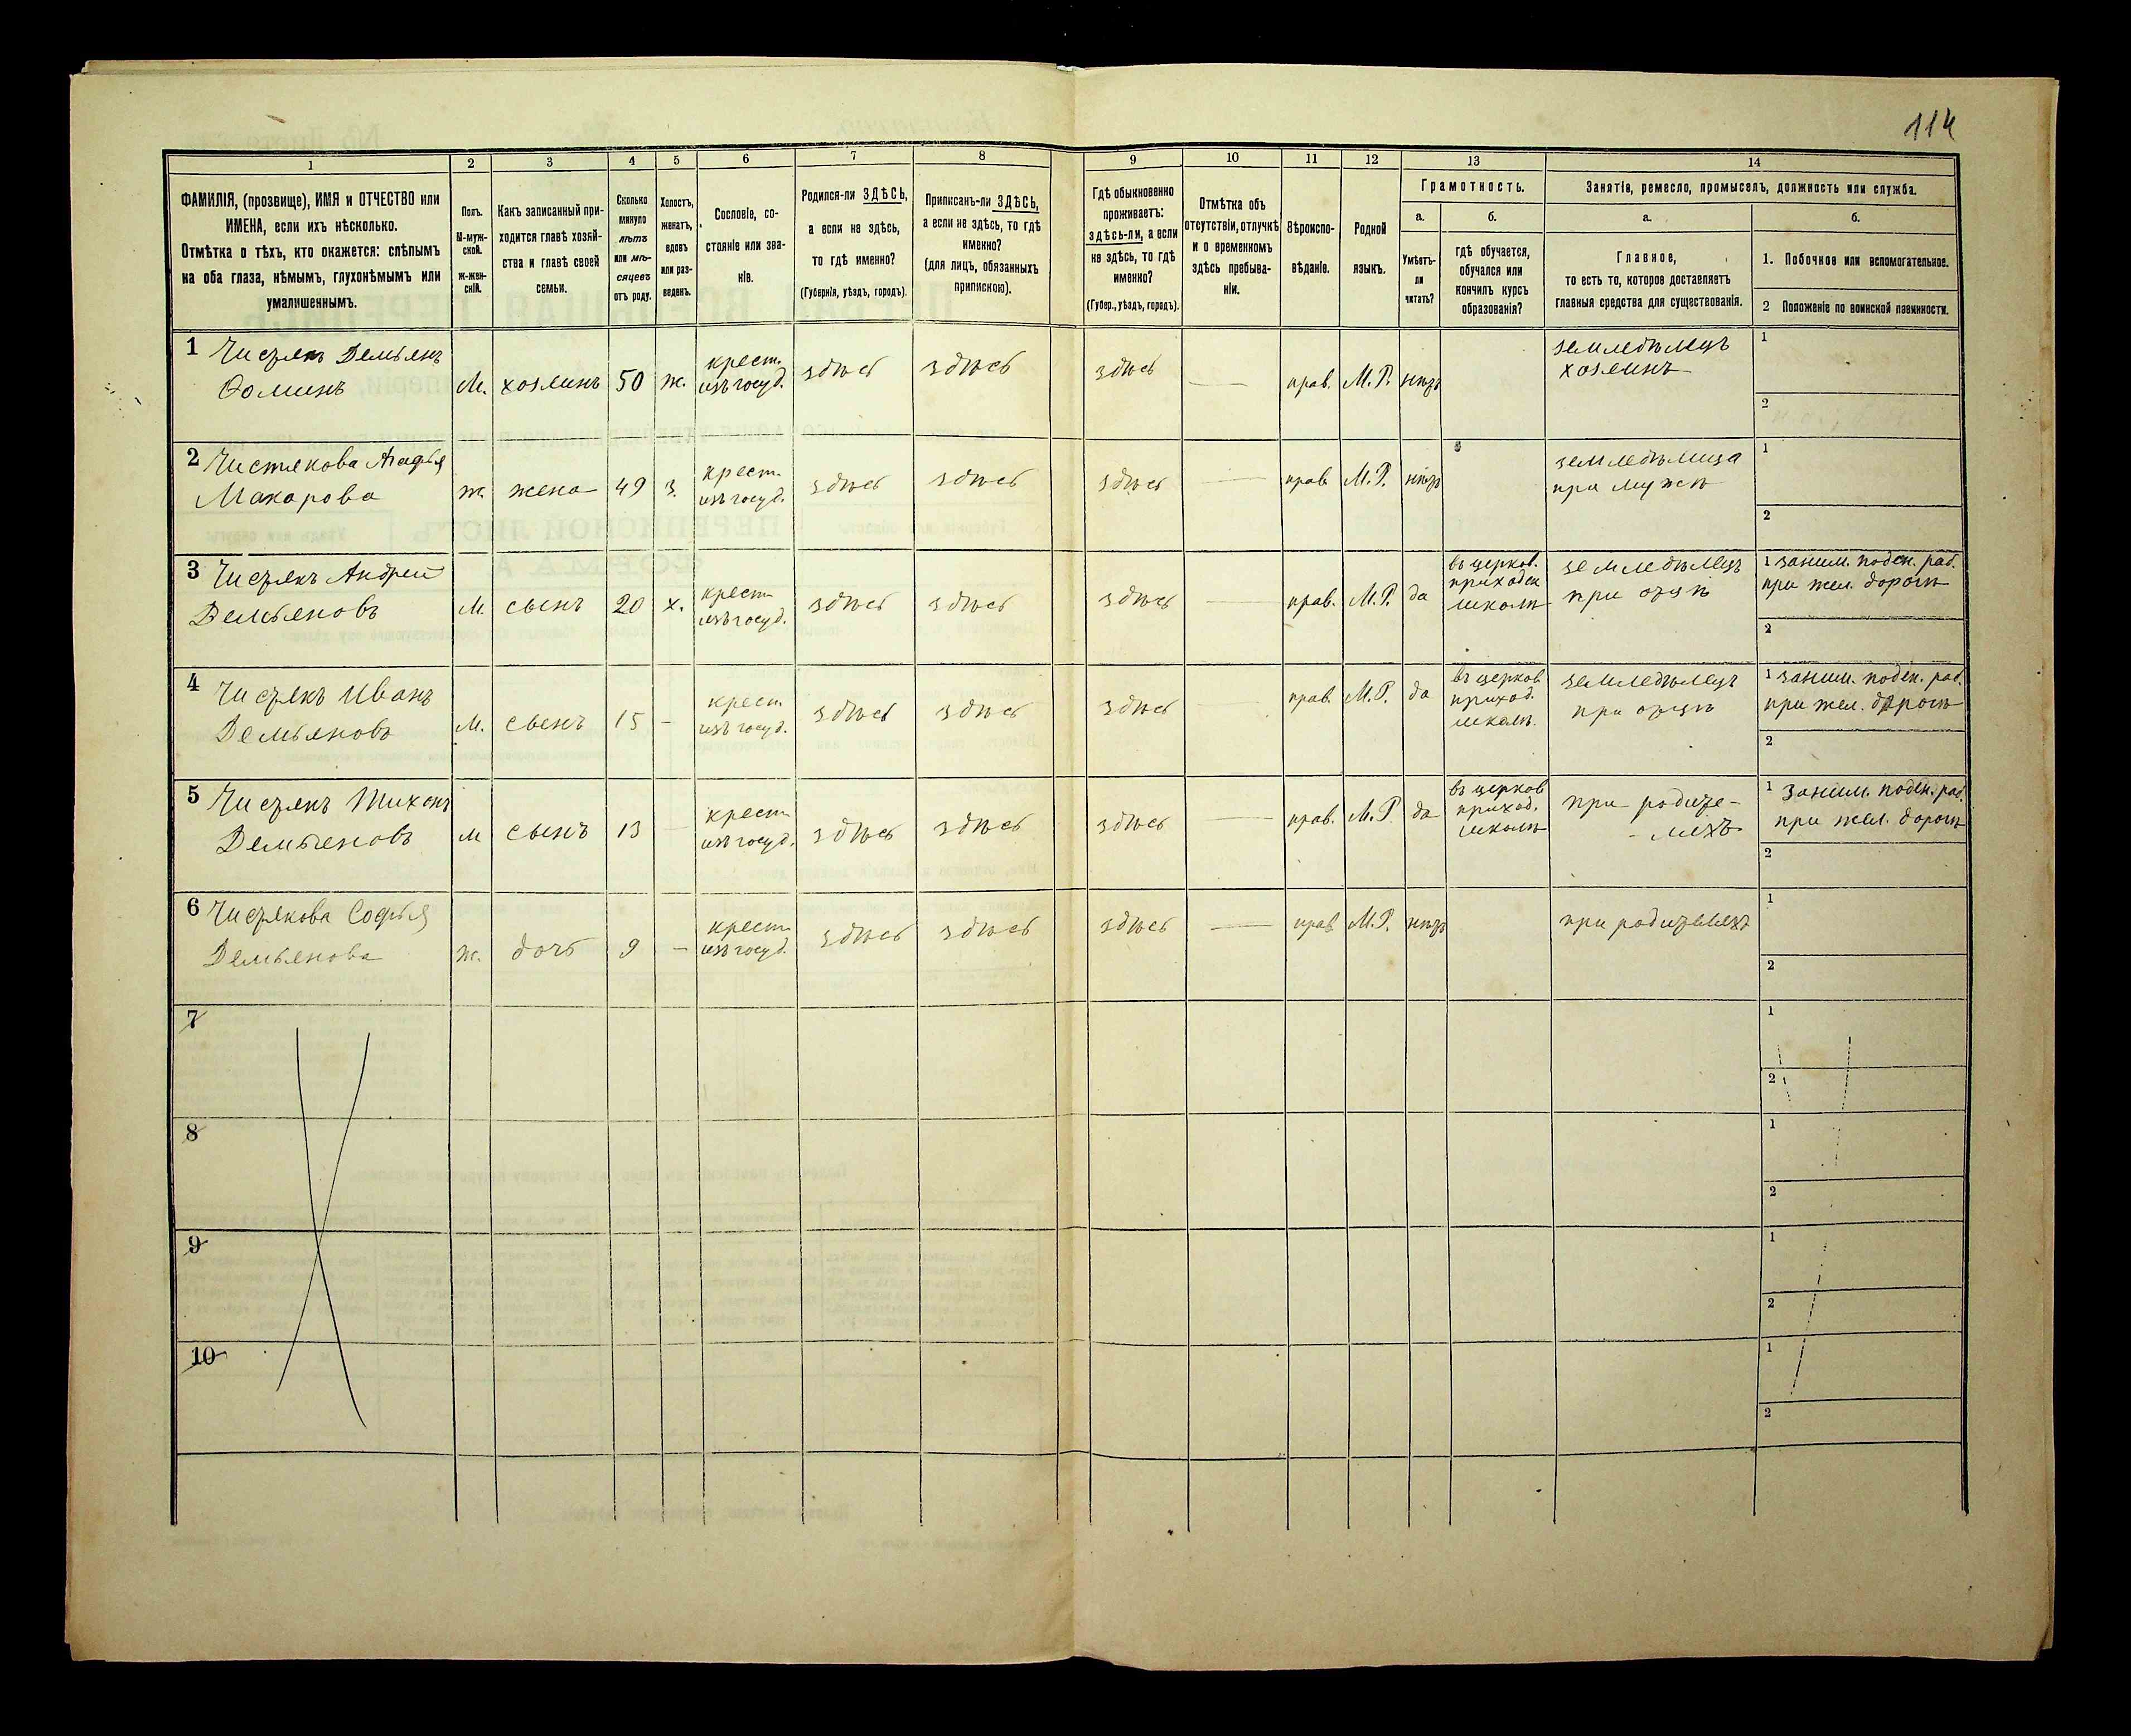 114
1 2 3 4 5 6 7 8 9 10 11 12 13 14
ФАМИЛІЯ, (прозвище), ИМЯ и ОТЧЕСТВО или
ИМЕНА, если ихъ нѣсколько.
Отмѣтка о тѣхъ, кто окажется: слѣпымъ
на оба глаза, нѣмымъ, глухонѣмымъ или
умалишеннымъ.
Полъ.
М-муж-
ской.
ж-жен-
скій.
Какъ записанный при-
ходится главѣ хозяй-
ства и главѣ своей
семьи.
Сколько
минуло
лѣтъ
или мѣ-
сяцевъ
отъ роду.
Холостъ,
женатъ,
вдовъ
или раз-
веденъ.
Сословіе, со-
стояніе или зва-
ніе.
Родился-ли ЗДѢСЬ,
а если не здѣсь,
то гдѣ именно?
(Губернія, уѣздъ, городъ).
Приписанъ-ли ЗДѢСЬ,
а если не здѣсь, то гдѣ
именно?
(для лицъ, обязанныхъ
припискою).
Гдѣ обыкновенно
проживаетъ:
здѣсь-ли, а если
не здѣсь, то гдѣ
именно?
(Губер., уѣздъ, городъ).
Отмѣтка объ
отсутствіи, отлучкѣ
и о временномъ
здѣсь пребыва-
ніи.
Вѣроиспо-
вѣданіе.
Родной
языкъ.
Грамотность.
а.
Умѣетъ-
ли
читать?
б.
гдѣ обучается,
обучался или
кончилъ курсъ
образованія?
Занятіе, ремесло, промыселъ, должность или служба.
а.
Главное,
то есть то, которое доставляетъ
главныя средства для существованія.
б.
1. Побочное или вспомогательное.
2 Положеніе по воинской повинности.
1 Чистякъ Демьянъ
Фоминъ
М. хозяинъ 50 ж.
крест.
изъ госуд.
здѣсь здѣсь здѣсь — прав. М.Р. нѣтъ
земледѣлецъ
хозяинъ
1
2
2 Чистякова Агафья
Макарова
ж. жена 49 з.
крест.
изъ госуд.
здѣсь здѣсь здѣсь — прав. М.Р. нѣтъ
земледѣлица
при мужѣ
1
2
3 Чистякъ Андрей
Демьяновъ
М. сынъ 20 х.
крест.
изъ госуд.
здѣсь здѣсь здѣсь — прав. М.Р. да
въ церков.
приходск
школѣ
земледѣлецъ
при отцѣ
1 заним. поден. раб.
при жел. дорогѣ
2
4 Чистякъ Иванъ
Демьяновъ
М. сынъ 15 —
крест.
изъ госуд.
здѣсь здѣсь здѣсь — прав. М.Р. да
въ церков
приход.
школѣ.
земледѣлецъ
при отцѣ
1 заним. поден. раб.
при жел. дорогѣ
2
5 Чистякъ Тихонъ
Демьяновъ
М сынъ 13 —
крест.
изъ госуд.
здѣсь здѣсь здѣсь — прав. М.Р. да
въ церков
приход.
школѣ
при родите-
-ляхъ
1 заним. поден. раб.
при жел. дорогѣ
2
6 Чистякова Софья
Демьянова
ж. дочь 9 —
крест.
изъ госуд.
здѣсь здѣсь здѣсь — прав М.Р. нѣтъ
при родителяхъ
1
2
7
1
2
8
1
2
9
1
2
10
1
2